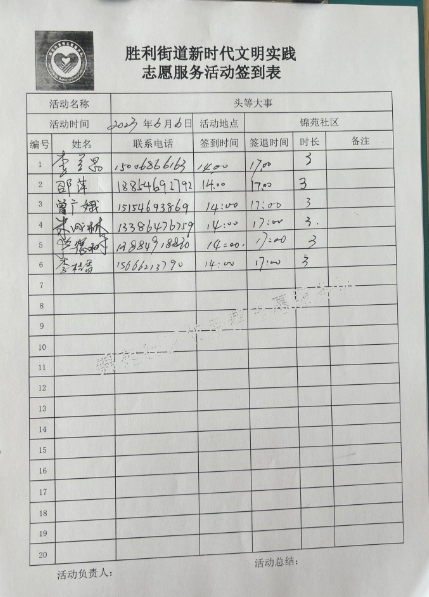 胜利街道新时代文明实践
志愿服务活动签到表
活动名称 头等大事
活动时间 2023年6月6日 活动地点 锦苑社区
编号 姓名 联系电话 签到时间 签退时间 时长 备注
1 15006866163 14:00 17:00 3
2 邵萍 13854692792 14:00 17:00 3
3 曾广娥 15154693869 14:00 17:00 3
4 13386476759 14:00 17:00 3.
5 13884918830 14:00. 17:00 3
6 15666213790 14:00 17:00 3
7
8
9
10
11
12
13
14
15
16
17
18
19
20
活动负责人： 活动总结：